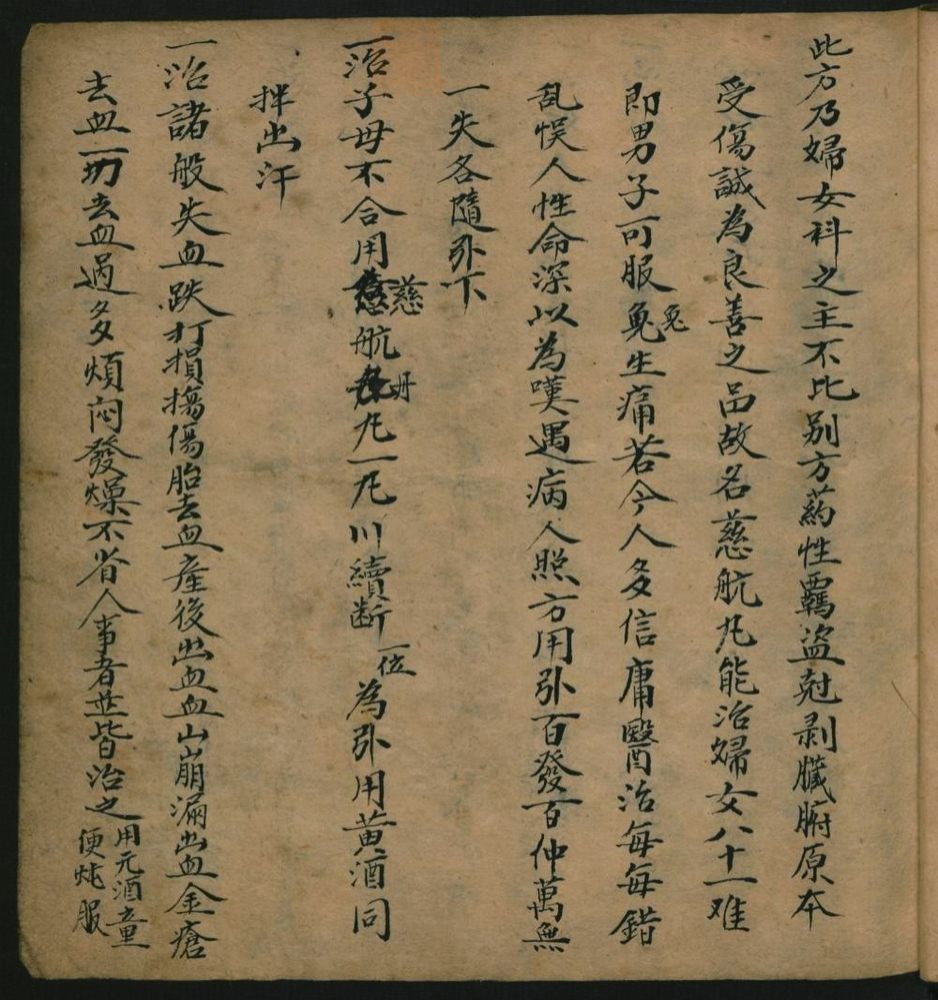 此方乃婦女科之主不比别方药性覊盗尅剥臟腑原本
受傷誠為良善之品故名慈航丸能治婦女八十一难
即男子可服兔兔生痛若今人多信庸醫治每每錯
乱悮人性命深以為嘆遇病人照方用引百發百仲萬無
一失各隨引下
一治子母不合用慈航丹丸一丸川續断一位為引用黄酒同
拌出汗
一治諸般失血跌打損揚傷胎去血産後出血血山崩漏出血金瘡
去血一切去血過多煩闷發燥不省人事者並皆治之用元酒童
便炖服